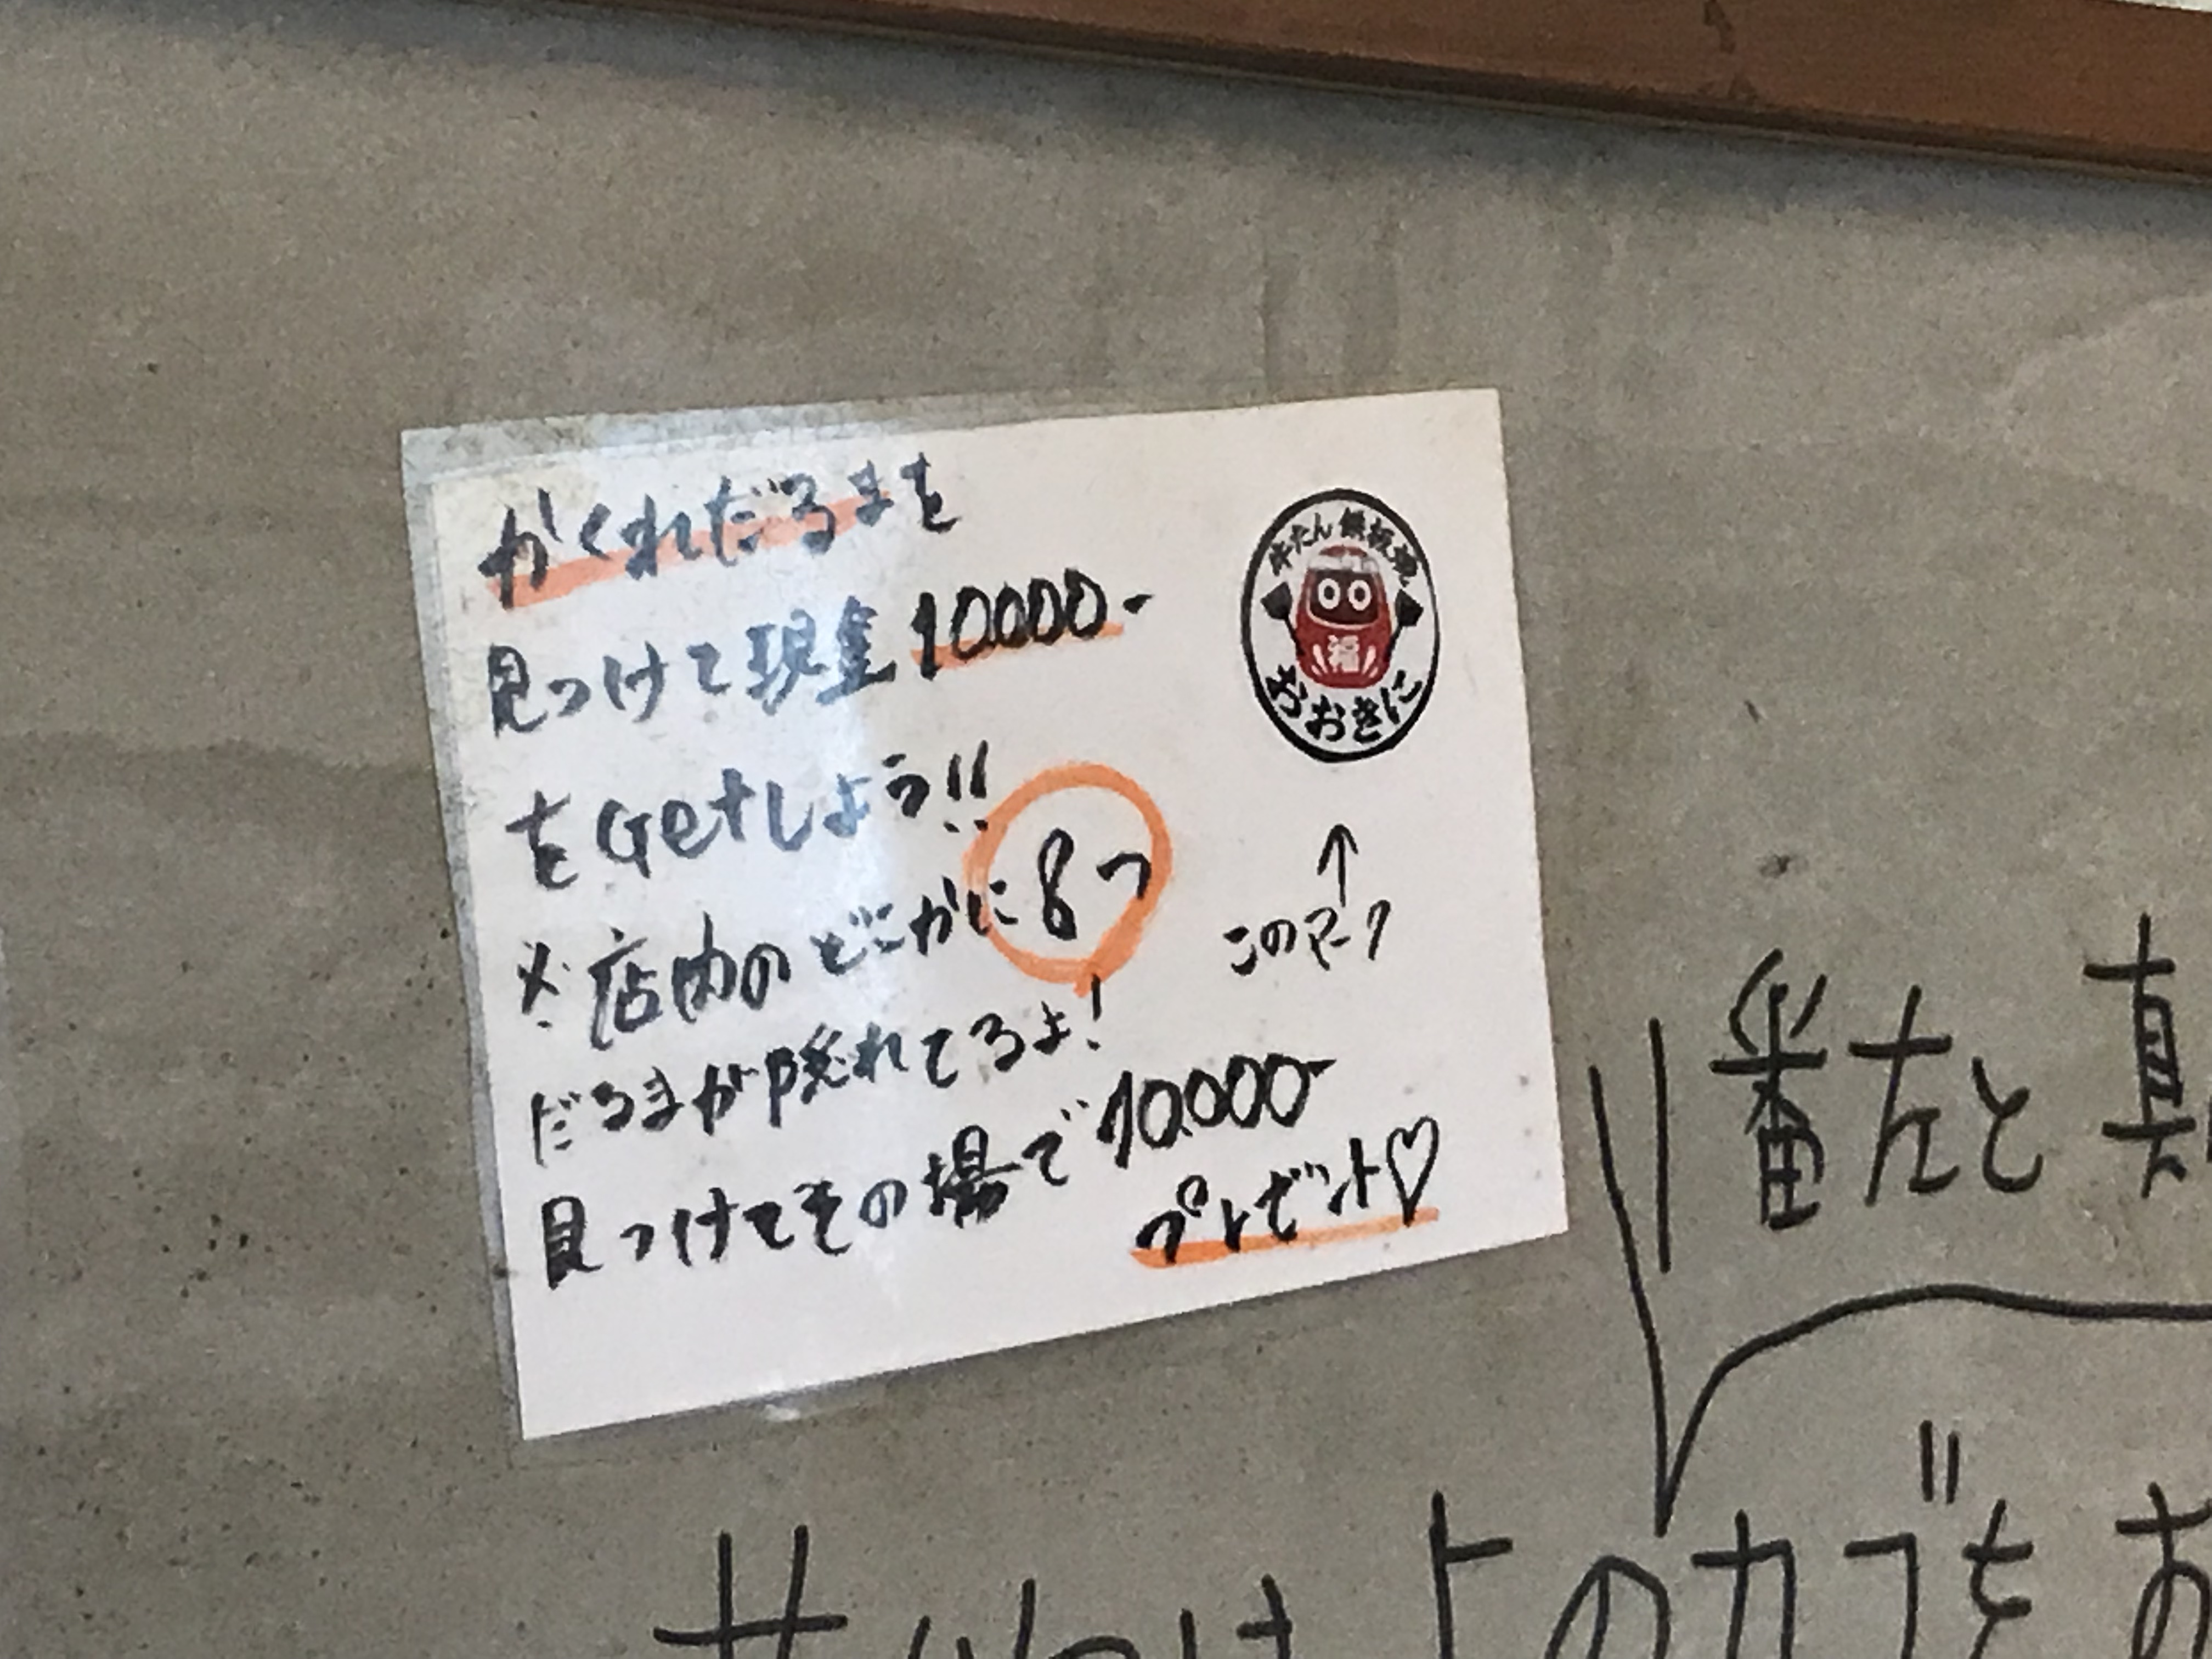 かくれだるまを
見つけて現金10.000-
をGetしよう!!
※店内のどこかに8つ
だるまが隠れてるよ!
見つけてその場で10.000-
プレゼント♡
牛たん鉄板焼
福
おおきに
↑
このマーク
番左と真
上のカブを